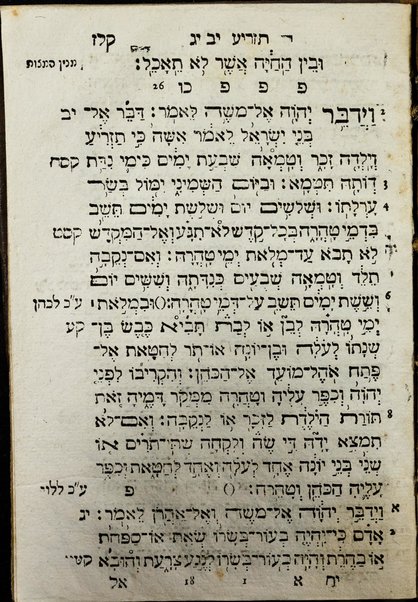 ו תזריע יב יג קלז
ובין החיה אשר לא תאכל:
פ פ פ כו 26
וַיְדַבֵּר יְהוָֹה אֶל־מֹשֶׁה לֵּאמֹר: דַּבֵּר אֶל־ יב
בְּנֵי יִשְׂרָאֵל לֵאמֹר אִשָּׁה כִּי תַזְרִיעַ
וְיָלְדָה זָכָר וְטָמְאָה שִׁבְעַת יָמִים כִּימֵי נִדַּת קסח
3 דְּוֹתָהּ תִּטְמָא: וּבַיּוֹם הַשְּׁמִינִי יִמּוֹל בְּשַׂר
4 עָרְלָתוֹ: וּשְׁלֹשִׁים יוֹם וּשְׁלֹשֶׁת יָמִים תֵּשֵׁב
בִּדְמֵי טָהֳרָה בְּכָל־קֹדֶשׁ לֹא־תִגָּע וְאֶל־הַמִּקְדָּשׁ קסט
לֹא תָבֹא עַד־מְלֹאת יְמֵי טָהֳרָהּ: וְאִם־נְקֵבָה
תֵלֵד וְטָמְאָה שְׁבֻעַיִם כְּנִדָּתָהּ וְשִׁשִּׁים יוֹם
6 וְשֵׁשֶׁת יָמִים תֵּשֵׁב עַל־דְּמֵי טָהֳרָה: וּבִמְלֹאת ע״כ לכהן
יְמֵי טָהֳרָהּ לְבֵן אוֹ לְבַת תָּבִיא כֶּבֶשׂ בֶּן־ קע
שְׁנָתוֹ לְעֹלָה וּבֶן־יוֹנָה אוֹ־תֹר לְחַטָּאת אֶל־
פֶּתַח אֹהֶל־מוֹעֵד אֶל־הַכֹּהֵן: וְהִקְרִיבוֹ לִפְנֵי
יְהוָֹה וְכִפֶּר עָלֶיהָ וְטָהֲרָה מִמְּקֹר דָּמֶיהָ זֹאת
8 תּוֹרַת הַיֹּלֶדֶת לַזָּכָר אוֹ לַנְּקֵבָה: וְאִם־לֹא
תִמְצָא יָדָהּ דֵּי שֶׂה וְלָקְחָה שְׁתֵּי־תֹרִים אוֹ
שְׁנֵי בְּנֵי יוֹנָה אֶחָד לְעֹלָה וְאֶחָד לְחַטָּאת וְכִפֶּר
עָלֶיהָ הַכֹּהֵן וְטָהֵרָה: פ ע״כ ללוי
א וַיְדַבֵּר יְהוָֹה אֶל־מֹשֶׁה וְאֶל־אַהֲרֹן לֵאמֹר: יג
2 אָדָם כִּי־יִהְיֶה בְעוֹר־בְּשָׂרוֹ שְׂאֵת אוֹ־סַפַּחַת
אוֹ בַהֶרֶת וְהָיָה בְעוֹר־בְּשָׂרוֹ לְנֶגַע צָרָעַת וְהוּבָא
יח א 1 18 אל